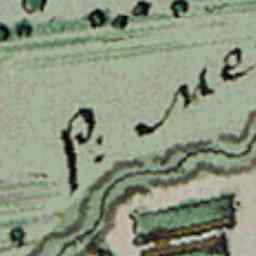 P. Me